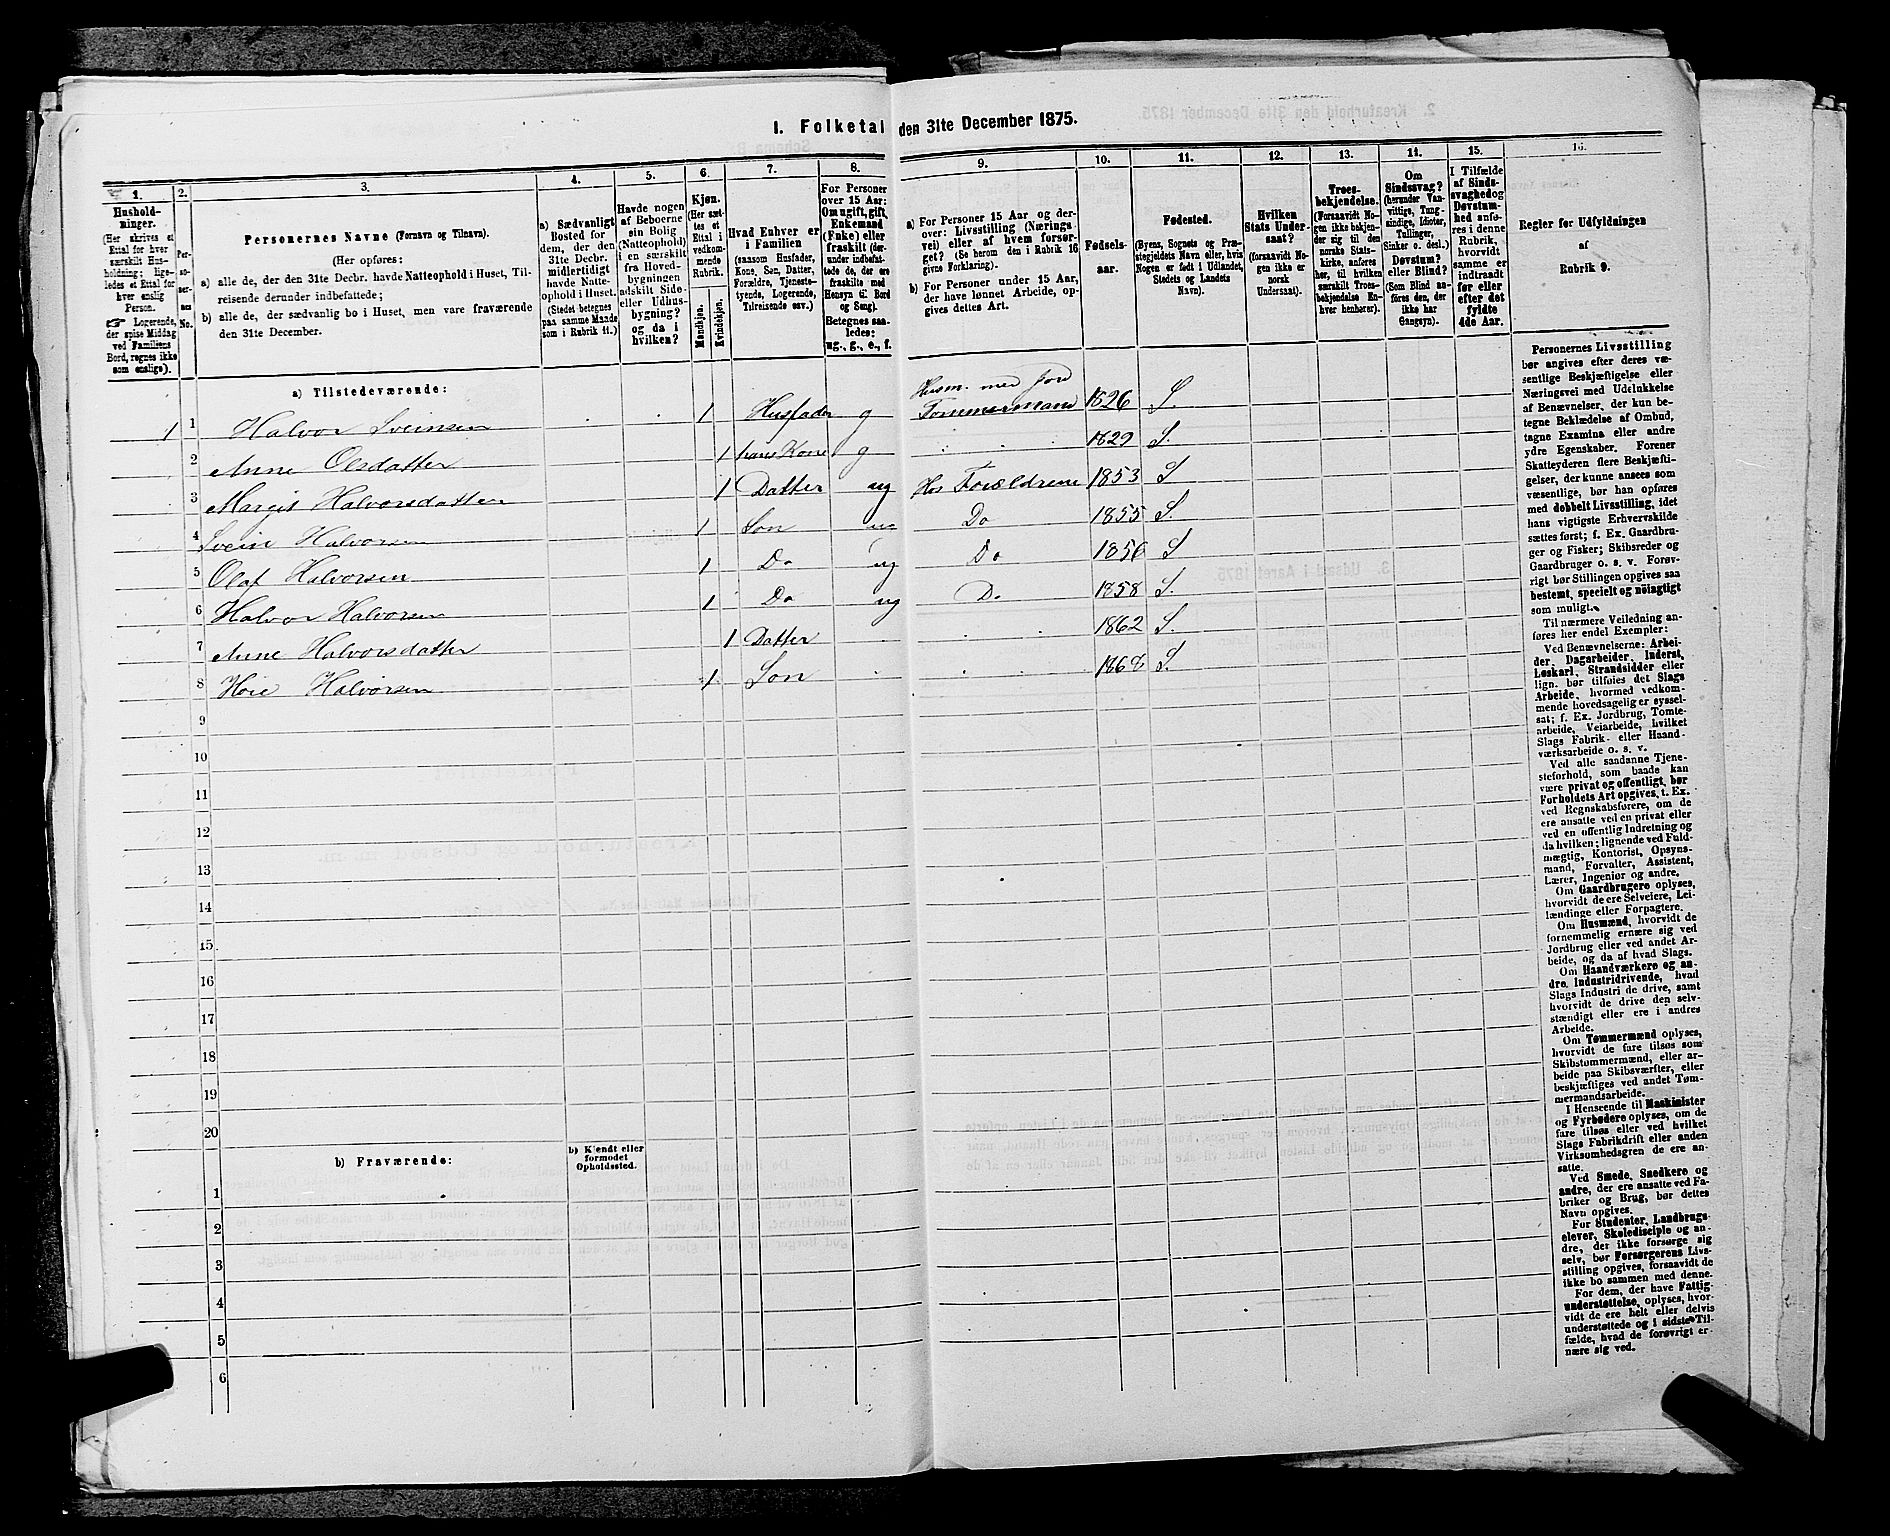 I. Folketal den 31te December 1875.
1. 2. 3. 4. 5. 6. 7. 8. 9. 10. 11. 12. 13. 14. 15. 16.
Husholdninger.
(Her skrives et Ettal for hver særskilt Husholdning; ligeledes et Ettal for hver enslig Person.
☞ Logerende, der spise Middag ved Familiens Bord, regnes ikke som enslige).
Personernes No.
Personernes Navne (Fornavn og Tilnavn).
(Her opføres:
a) alle de, der den 31te Decbr. havde Natteophold i Huset, Tilreisende derunder indbefattede;
b) alle de, der sædvanlig bo i Huset, men vare fraværende den 31te December.
a) Sædvanligt Bosted for dem, der den 31te Decbr. midlertidigt havde Natteophold i Huset. (Stedet betegnes paa samme Maade som i Rubrik 11.)
Havde nogen af Beboerne sin Bolig (Natteophold) i en særskilt fra Hovedbygningen adskilt Side- eller Udhusbygning? og da i hvilken?
Kjøn. (Her sættes et Ettal i vedkommende Rubrik.
Mandkjøn. Kvindekjøn.
Hvad Enhver er i Familien (saasom Husfader, Kone, Søn, Datter, Forældre, Tjenestetyende, Logerende, Tilreisende osv.)
For Personer over 15 Aar: Om ugift, gift, Enkemand (Enke) eller fraskilt (derunder indbefattede de, der ere fraskilte med Hensyn til Bord og Sæng).
Betegnes saaledes: ug., g., e., f.
a) For Personer 15 Aar og derover: Livsstilling (Næringsvei) eller af hvem forsørget? (Se herom den i Rubrik 16 givne Forklaring).
b) For Personer under 15 Aar, der have lønnet Arbeide, opgives dettes Art.
Fødselsaar.
Fødested.
(Byens, Sognets og Præstegjeldets Navn eller, hvis Nogen er født i Udlandet, Stedets og Landets Navn).
Hvilken Stats Undersaat?
(forsaavidt Nogen ikke er norsk Undersaat).
Troesbekjendelse.
(Forsaavidt Nogen ikke bekjender sig til den norske Statskirke, anføres her, til hvilken særskilt Troesbekjendelse Enhver henhører).
Om Sindssvag? (herunder Vanvittige, Tungsindige, Idioter, Tullinger, Sinker o. desl.) Døvstum? eller Blind? (Som Blind anføres den, der ikke har Gangsyn).
I Tilfælde af Sindssvaghed og Døvstumhed anføres i denne Rubrik, hvorvidt samme er indtraadt før eller efter det fyldte 4de Aar.
Regler for Udfyldningen
af
Rubrik 9.
a) Tilstedeværende:
Husm. med Jord
1 1 Halvor Sveinsen 1 Husfader g Tømmermand 1826 S.
2 Anne Olsdatter 1 hans Kone g 1829 S.
3 Margit Halvorsdatter 1 Datter ug Hos Forældrene 1853 S
4 Svein Halvorsen 1 Søn ug Do 1855 S.
5 Olaf Halvorsen 1 Do ug Do 1856 S
6 Halvor Halvorsen 1 Do ug Do 1858 S.
7 Anne Halvorsdatter 1 Datter 1862 S.
8 Halvorsen 1 Søn 1868 S.
9
10
11
12
13
14
15
16
17
18
19
20
b) Fraværende:
b) Kjendt eller formodet Opholdssted.
1
2
3
4
5
6
Personernes Livsstilling
bør angives efter deres væ-
sentlige Beskjæftigelse eller
Næringsvei med Udelukkelse
af Benævnelser, der kun be-
tegne Beklædelse af Ombud,
tagne Examina eller andre
ydre Egenskaber. Forener
Skatteyderen flere Beskjæfti-
gelser, der kunne ansees som
væsentlige, bør han opføres
med dobbelt Livsstilling, idet
hans vigtigste Erhvervskilde
sættes først; f. Ex. Gaardbru-
ger og Fisker; Skibsreder og
Gaardbruger o. s. v. Forøv-
rigt bør Stillingen opgives saa
bestemt, specielt og nöiagtigt
som muligt.
Til nærmere Veiledning an-
føres her endel Exempler:
Ved Benævnelserne: Arbei-
der, Dagarbeider, Inderst,
Løskarl, Strandsidder eller
lign. bør tilføies det Slags
Arbeide, hvormed vedkom-
mende hovedsagelig er syssel-
sat; f. Ex. Jordbrug, Tomte-
arbeide, Veiarbeide, hvilket
Slags Fabrik- eller Haand-
værksarbeide o. s. v.
Ved alle saadanne Tjene-
steforhold, som baade kan
være privat og offentligt, bør
Forholdets Art opgives, t. Ex.
ved Regnskabsførere, om de
ere ansatte ved en privat eller
ved en offentlig Indretning og
da hvilken; lignende ved Fuld-
mægtig, Kontorist, Opsyns-
mand, Forvalter, Assistent,
Lærer, Ingeniør og andre.
Om Gaardbrugere oplyses,
hvorvidt de ere Selveiere, Lei-
lændinge eller Forpagtere.
Om Husmænd, hvorvidt de
fornemmelig ernære sig ved
Jordbrug eller ved andet Ar-
beide, og da af hvad Slags.
Om Haandværkere og an-
dre, Industridrivende, hvad
Slags Industri de drive, samt
hvorvidt de drive den selv-
stændigt eller ere i andres
Arbeide.
Om Tømmermænd oplyses,
hvorvidt de fare tilsøs som
Skibstømmermænd, eller ar-
beide paa Skibsværfter, eller
beskjæftiges ved andet Tøm-
mermandsarbeide.
I Henseende til Maskinister
og Fyrbødere oplyses, om de
fare tilsøs eller ved hvilket
Slags Fabrikdrift eller anden
Virksomhedsgren de ere an-
satte.
Ved Smede, Snedkere og
andre, der ere ansatte ved Fa-
briker og Brug, bør dettes
Navn opgives.
For Studenter, Landbrugs-
elever, Skoledisciple og an-
dre, der ikke forsørge sig
selv, bør Forsørgerens Livs-
stilling opgives, forsaavidt de
ikke bo sammen med denne.
For dem, der have Fattig-
understøttelse, oplyses, hvor-
vidt de ere helt eller delvis
understøttede og i sidste Til-
fælde, hvad de forøvrigt er-
nære sig ved.